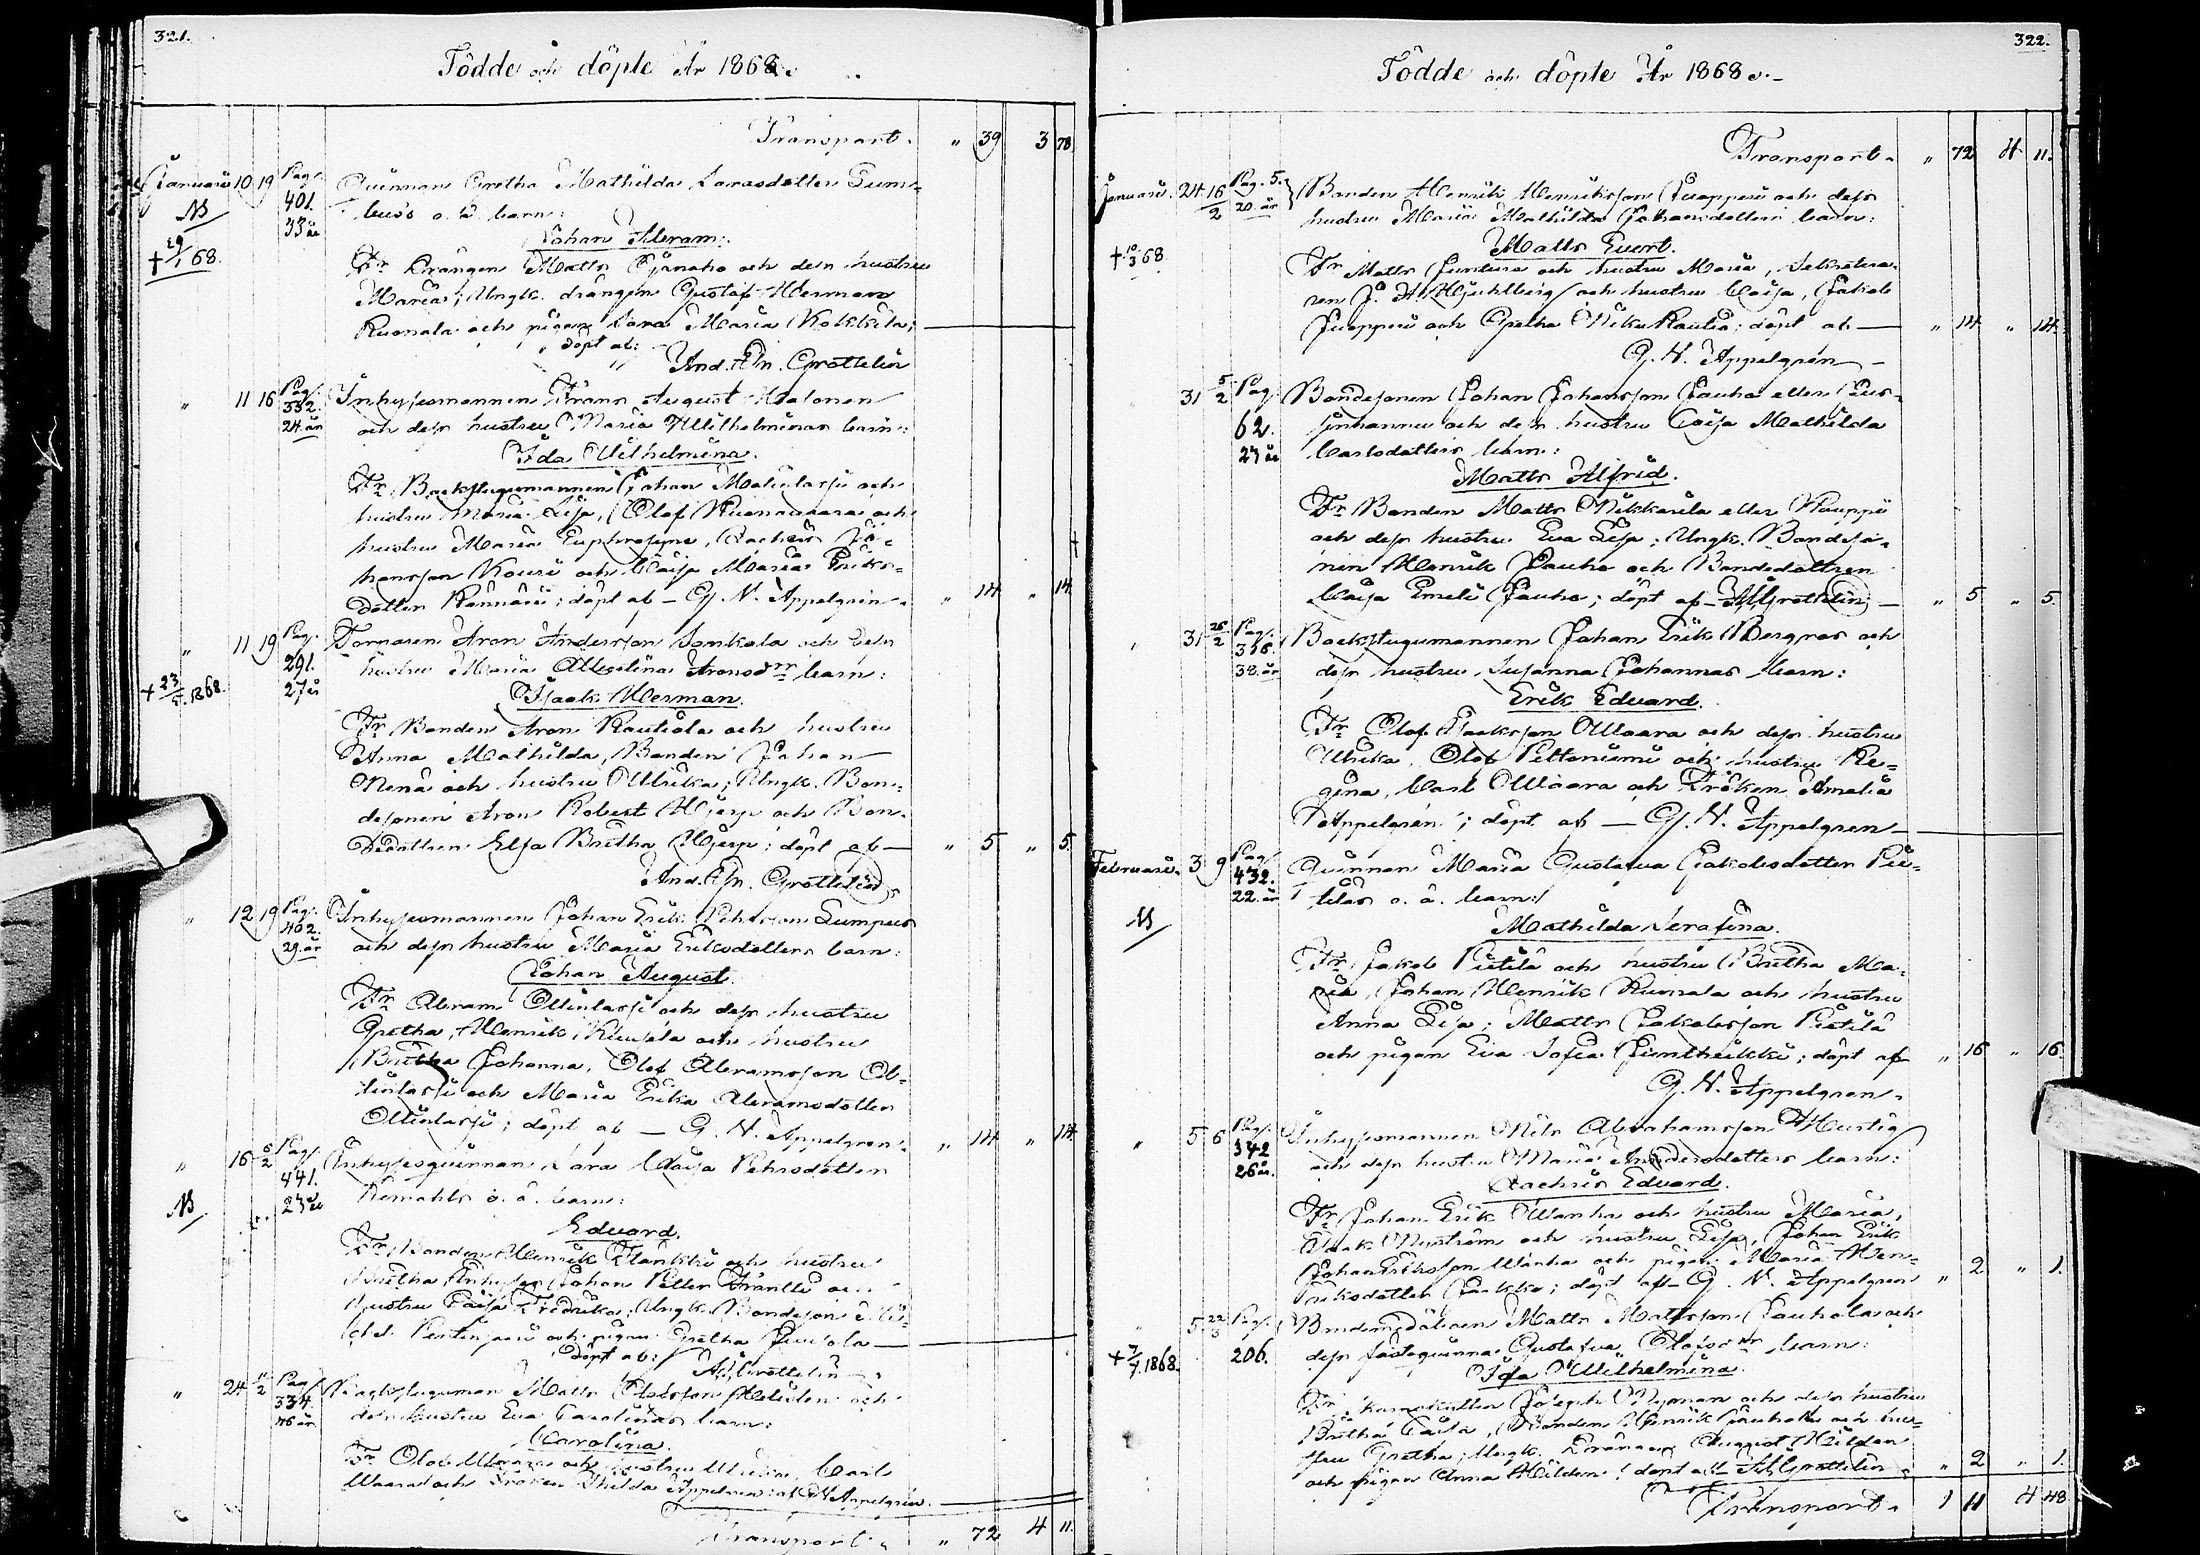 321.
Födde och döpte År 1868.
Transport. " 39 3 78.
Januari 10 19 Pag. 401. 33 år Qvinnan Gretha Mathilda Larsdotter
o. ä. barn:
Johan Abram.
+ 29/1 68.
Fr Drängen Matts och dess hustru
Maria; Ungk. drängen Gustaf Herman
Ruonala och pigan Sara Maria Kokkila;
döpt af:
And. Joh. Grottelin
" 11 16 Pag. 332. 24 år Inhysesmannen Frans August Halonen
och dess hustru Maria Wilhelminas barn:
Ida Wilhelmina.
Fr Backstugumannen Johan och
hustru Maria Lisa, Olof och
hustru Maria Euphrosyne, Zachris Jo-
hansson Kouri och Caisa Maria Eriks-
dotter döpt af – G. N. Appelgren. " 14 " 14.
" 11 19 Pag. 291. 27 år Tornaren Aron Andersson Sonkala och dess
hustru Maria Albertina Aronsdrs barn:
Isaak Herman.
+ 23/5 1868.
Fr Bonden Aron Rautiola och hustru
Anna Mathilda, Bonden Johan
Nenä och hustru Ulrika; Ungk. Bon-
desonen Aron Robert Hjerp och Bon-
dedottren Elsa Britha Hjerp; döpt af — " 5 " 5.
And. Joh. Grottelin
" 12 19 Pag. 402. 29 år Inhysesmannen Johan Erik Pehrsson Lumpus
och dess hustru Maria Eriksdotters barn:
Johan August.
Fr Abram Ollinlassi och dess hustru
Gretha, Henrik Kuusela och hustru
Britha Johanna, Olof Abramsson Ol-
linlassi och Maria Erika Abramsdotter
Ollinlassi; döpt af — G. N. Appelgren. " 14 " 14.
" 16 6/2 Pag. 441. 23 år Inhysesqvinnan Sara Caisa Pehrsdotter
o. ä. barn:
Eduard.
Fr Bonden Henrik Plankki och hustru
Britha Inhyses Johan Petter Frantti och
hustru Caisa Fredrika; Ungk. Bondeson
och pigan Gretha Juusola
döpt af:
A. J. Grottelin
" 24 11/2 Pag. 334. Backstuguman Matts Olofsson och
dess hustru Eva Carolinas barn:
Carolina.
Fr Olof Waara och hustru Ulrika, Carl
Waara och Fröken Hilda Appelgren: af G N Appelgren.
Transport. " 72 4 11.
322.
Födde och döpte År 1868.
Transport. " 72 4 11.
Januari. 24 16/2 Pag. 5. 20. år Bonden Henrik Henriksson Juopperi och dess
hustru Maria Mathilda Johansdotters barn:
Matts Evert.
+ 10/3 68
Fr Matts Juntura och hustru Maria, Sekretera-
ren J. A. Hjuhlberg och hustru Caisa, Jakob
Juopperi och Gretha Niku Rautio; döpt af — " 14 " 14.
G. N. Appelgren
31 5/2 Pag. 62. 23 år Bondesonen Johan Johansson Jauho eller
och dess hustru Caisa Mathilda
Carlsdotters barn:
Matts Alfrid.
Fr Bonden Matts Nikkarila eller Kauppi
och dess hustru Eva Lisa; Ungk. Bondeso-
nen Henrik Jauho och Bondedottren
Caisa Emeli Jauho; döpt af – A J Grottelin — " 5 " 5.
31 26/2 Pag. 38. år Backstugumannen Johan Erik Bergnas och
dess hustru Susanna Johannas barn:
Erik Eduard.
Fr Olof Isaksson Waara och dess hustru
Ulrika, Olof Peltoniemi och hustru Re-
gina, Carl Waara och Fröken Amalia
Appelgren; döpt af — G. N. Appelgren —
Februari. 3 9 Pag. 432. 22. år Qvinnan Maria Gustava Jakobsdotter Pie-
tiläs o. ä. barn:
Mathilda Serafina.
Fr Jakob Pietilä och hustru Britha Ma-
ria, Johan Henrik och hustru
Anna Lisa; Matts Jakobsson Pietilä
och pigan Eva Sofia Juntheikki; döpt af " 16 " 16.
G. N. Appelgren.
" 5 6 Pag. 342 26 år. Inhysesmannen Nils Abrahamsson Hurtig
och dess hustru Maria Andersdotters barn:
Zachris Eduard.
Fr Johan Erik Wanha och hustru Maria,
Isaak Nyström och hustru Lisa, Johan Erik
Johan Eriksson Wanha och pigan Maria Hen-
riksdotter Jaakko; döpt af – G. N. Appelgren " 2 " 1.
" 5 22/3 Pag. 206. Bondemågen Matts Mattsson Jauhola och
dess fästeqvinna Gustafva Olofsdrs barn:
Ida Wilhelmina.
+ 7/7 1868.
Fr Joseph Nyman och dess hustru
Britha Caisa, Bonden Henrik Jauhola och hu-
stru Gretha; Ungk. Drängen August Hilden
och pigan Anna Hilden; döpt af – A J Grottelin " 2 " 1.
Transport. 1 11 4 48